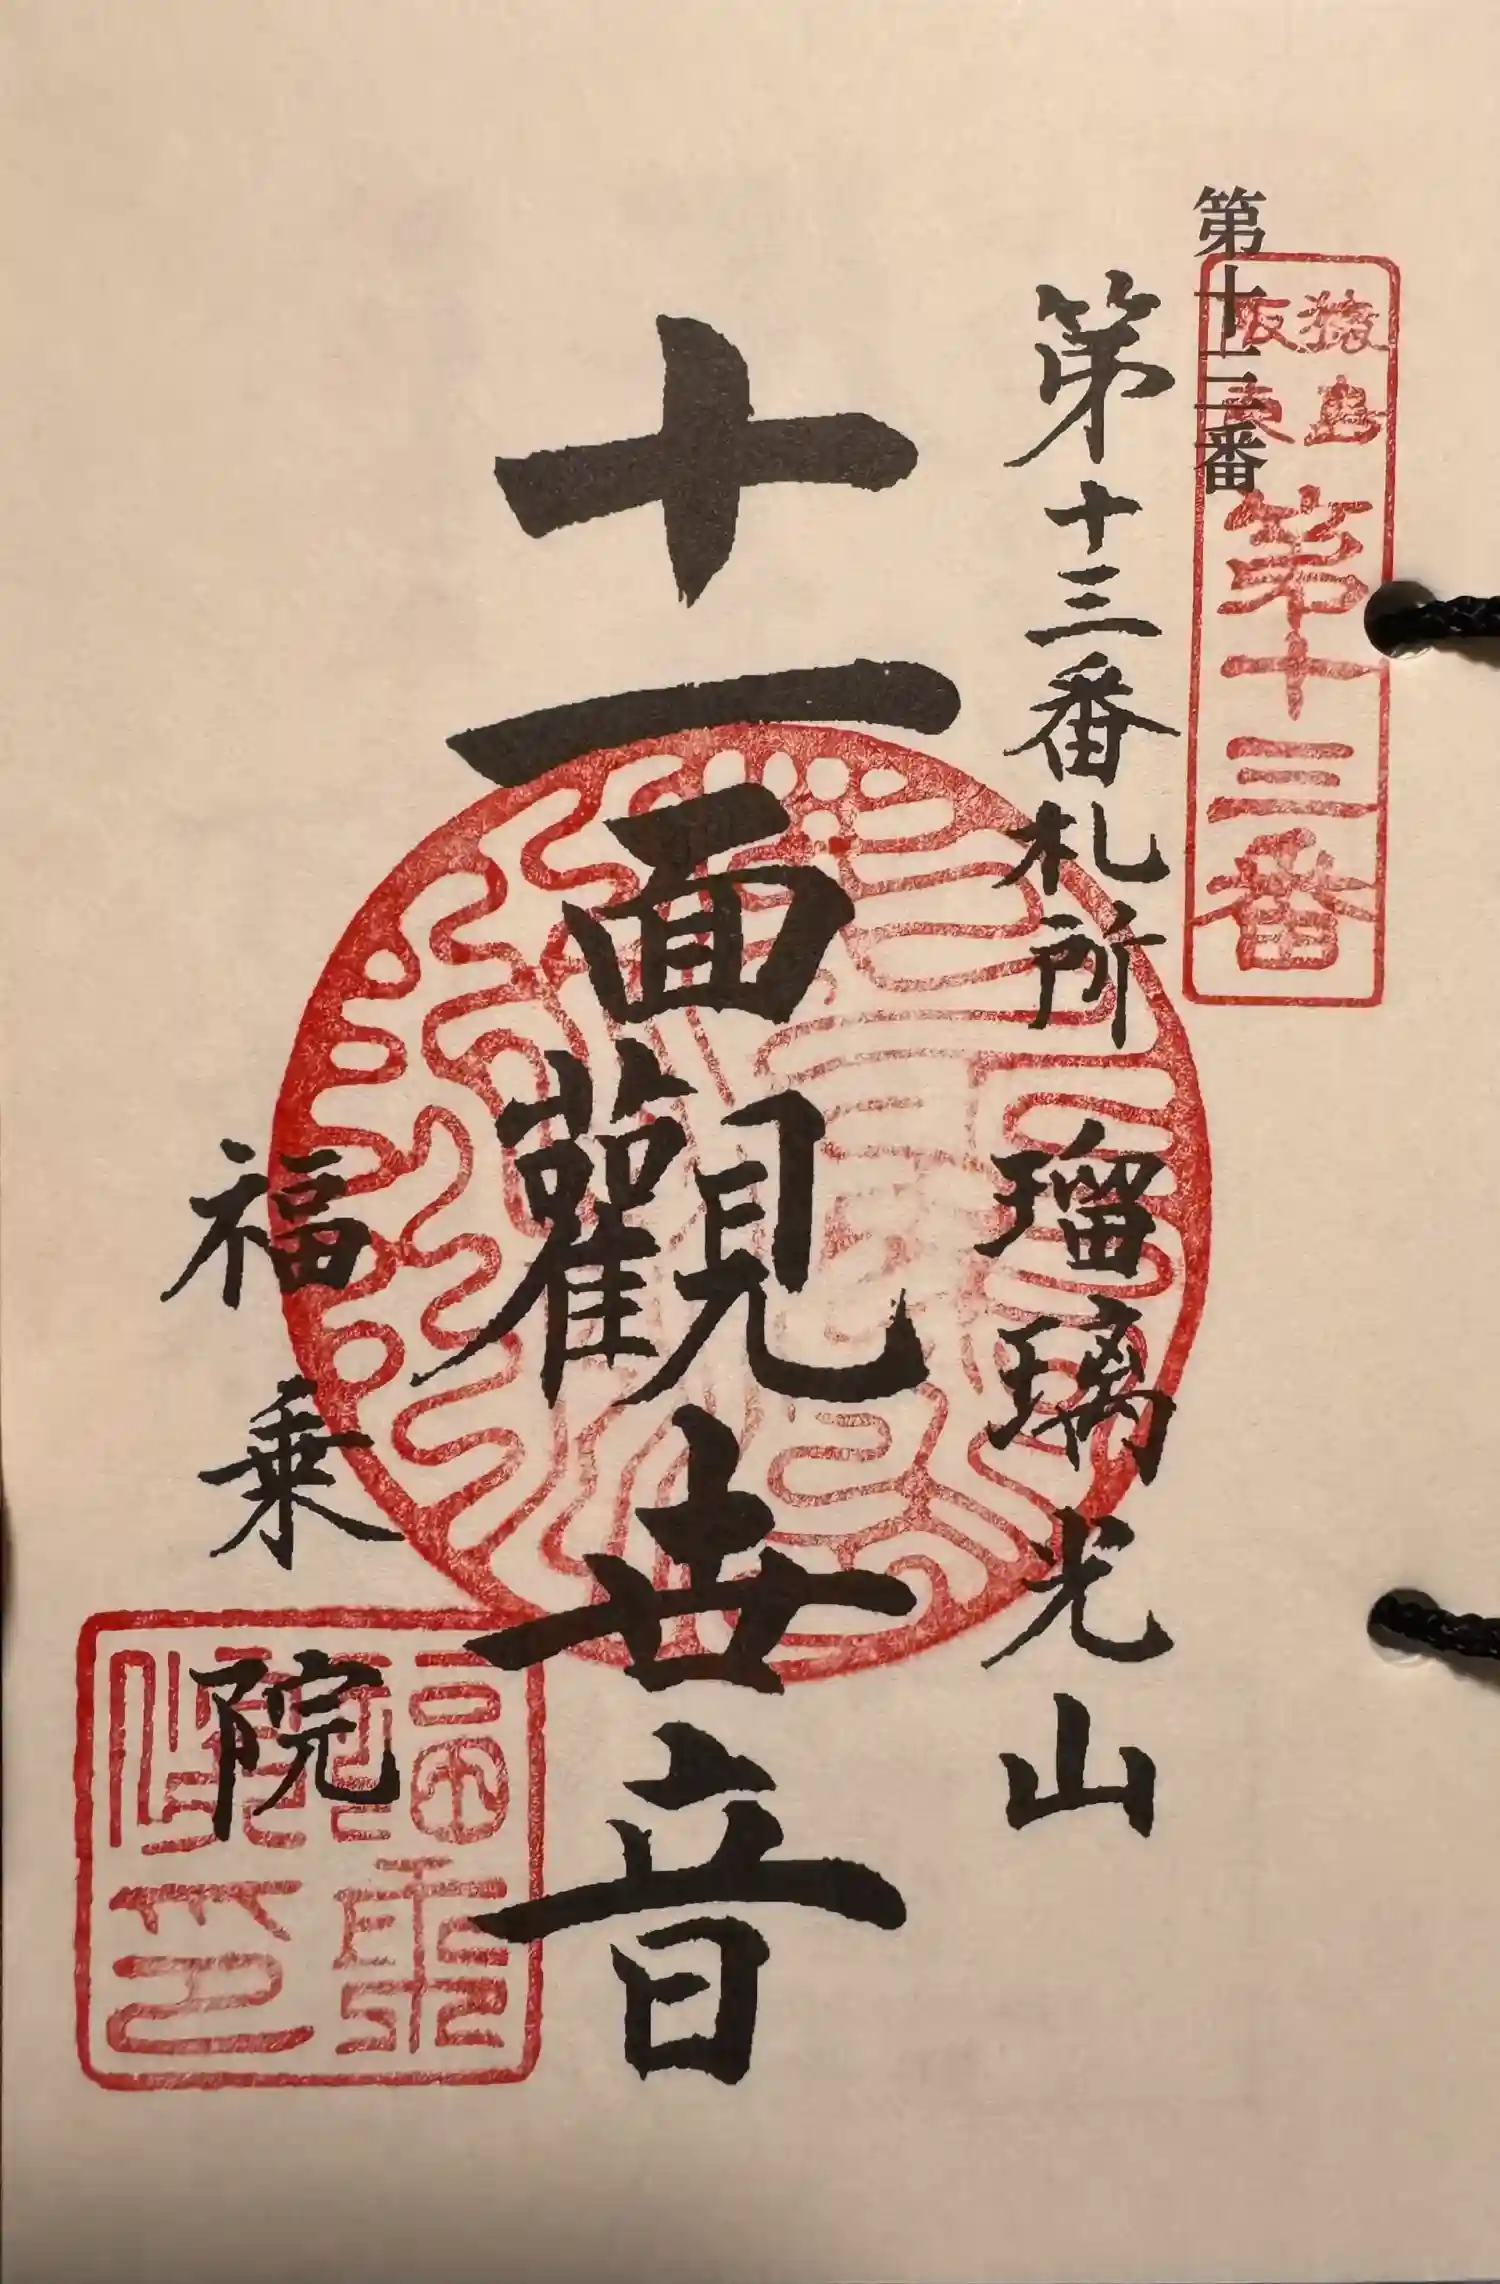 猿島
第十三番
第十三番
第十三番札所 瑠璃光山
十一面觀世音
福乗院